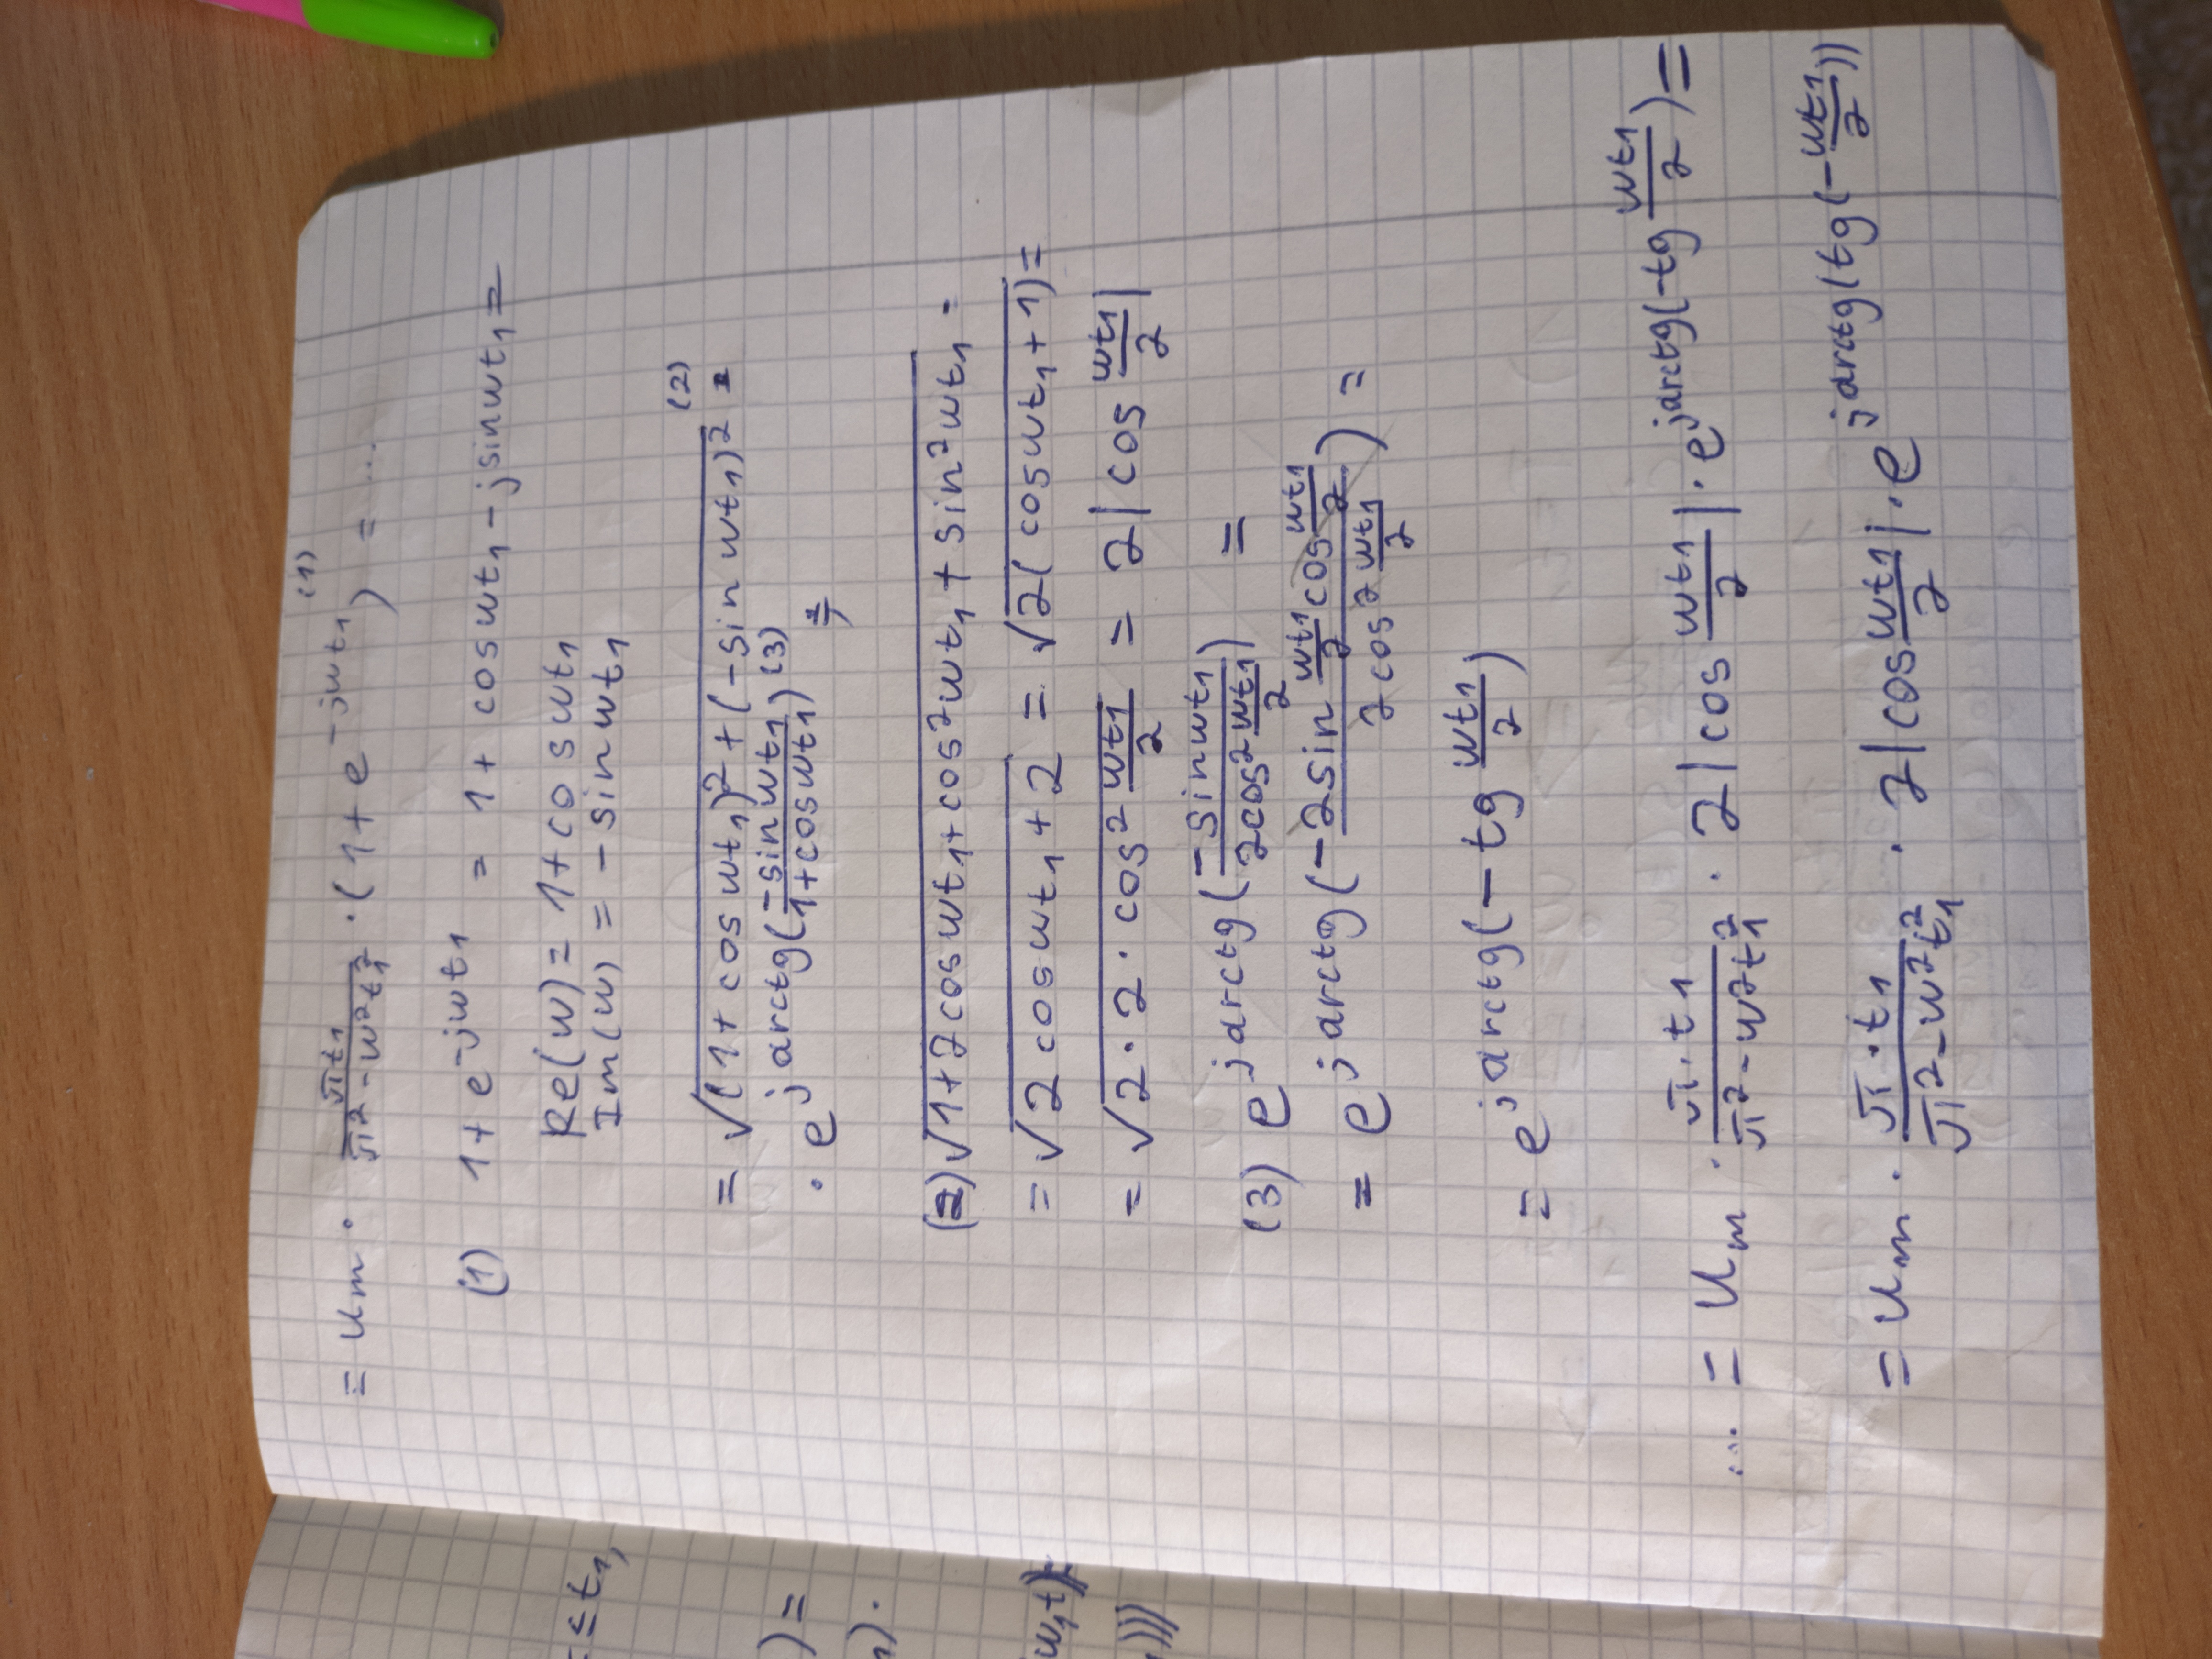 ≤ t₁,
) =
1) ·
w₁t)) =
)))
= Um · πt₁/(π² - w²t₁²) · (1 + e^(-jwt₁))⁽¹⁾ = ...
(1) 1 + e^(-jwt₁) = 1 + cos wt₁ - j sin wt₁ =
Re(w) = 1 + cos wt₁
Im(w) = - sin wt₁
= √((1 + cos wt₁)² + (-sin wt₁)²) ⁽²⁾ ·
· e^(j arctg(-sin wt₁/(1 + cos wt₁))) ⁽³⁾ =
(2) √(1 + 2 cos wt₁ + cos² wt₁ + sin² wt₁) =
= √(2 cos wt₁ + 2) = √(2(cos wt₁ + 1)) =
= √(2 · 2 · cos² wt₁/2) = 2|cos wt₁/2|
(3) e^(j arctg(-sin wt₁/(2cos² wt₁/2))) =
= e^(j arctg(-2 sin wt₁/2 cos wt₁/2 / (2 cos² wt₁/2))) =
= e^(j arctg(-tg wt₁/2))
... = Um · π · t₁/(π² - w²t₁²) · 2|cos wt₁/2| · e^(j arctg(-tg wt₁/2)) =
= Um · π · t₁/(π² - w²t₁²) · 2|cos wt₁/2| · e^(j arctg(tg(-wt₁/2)))